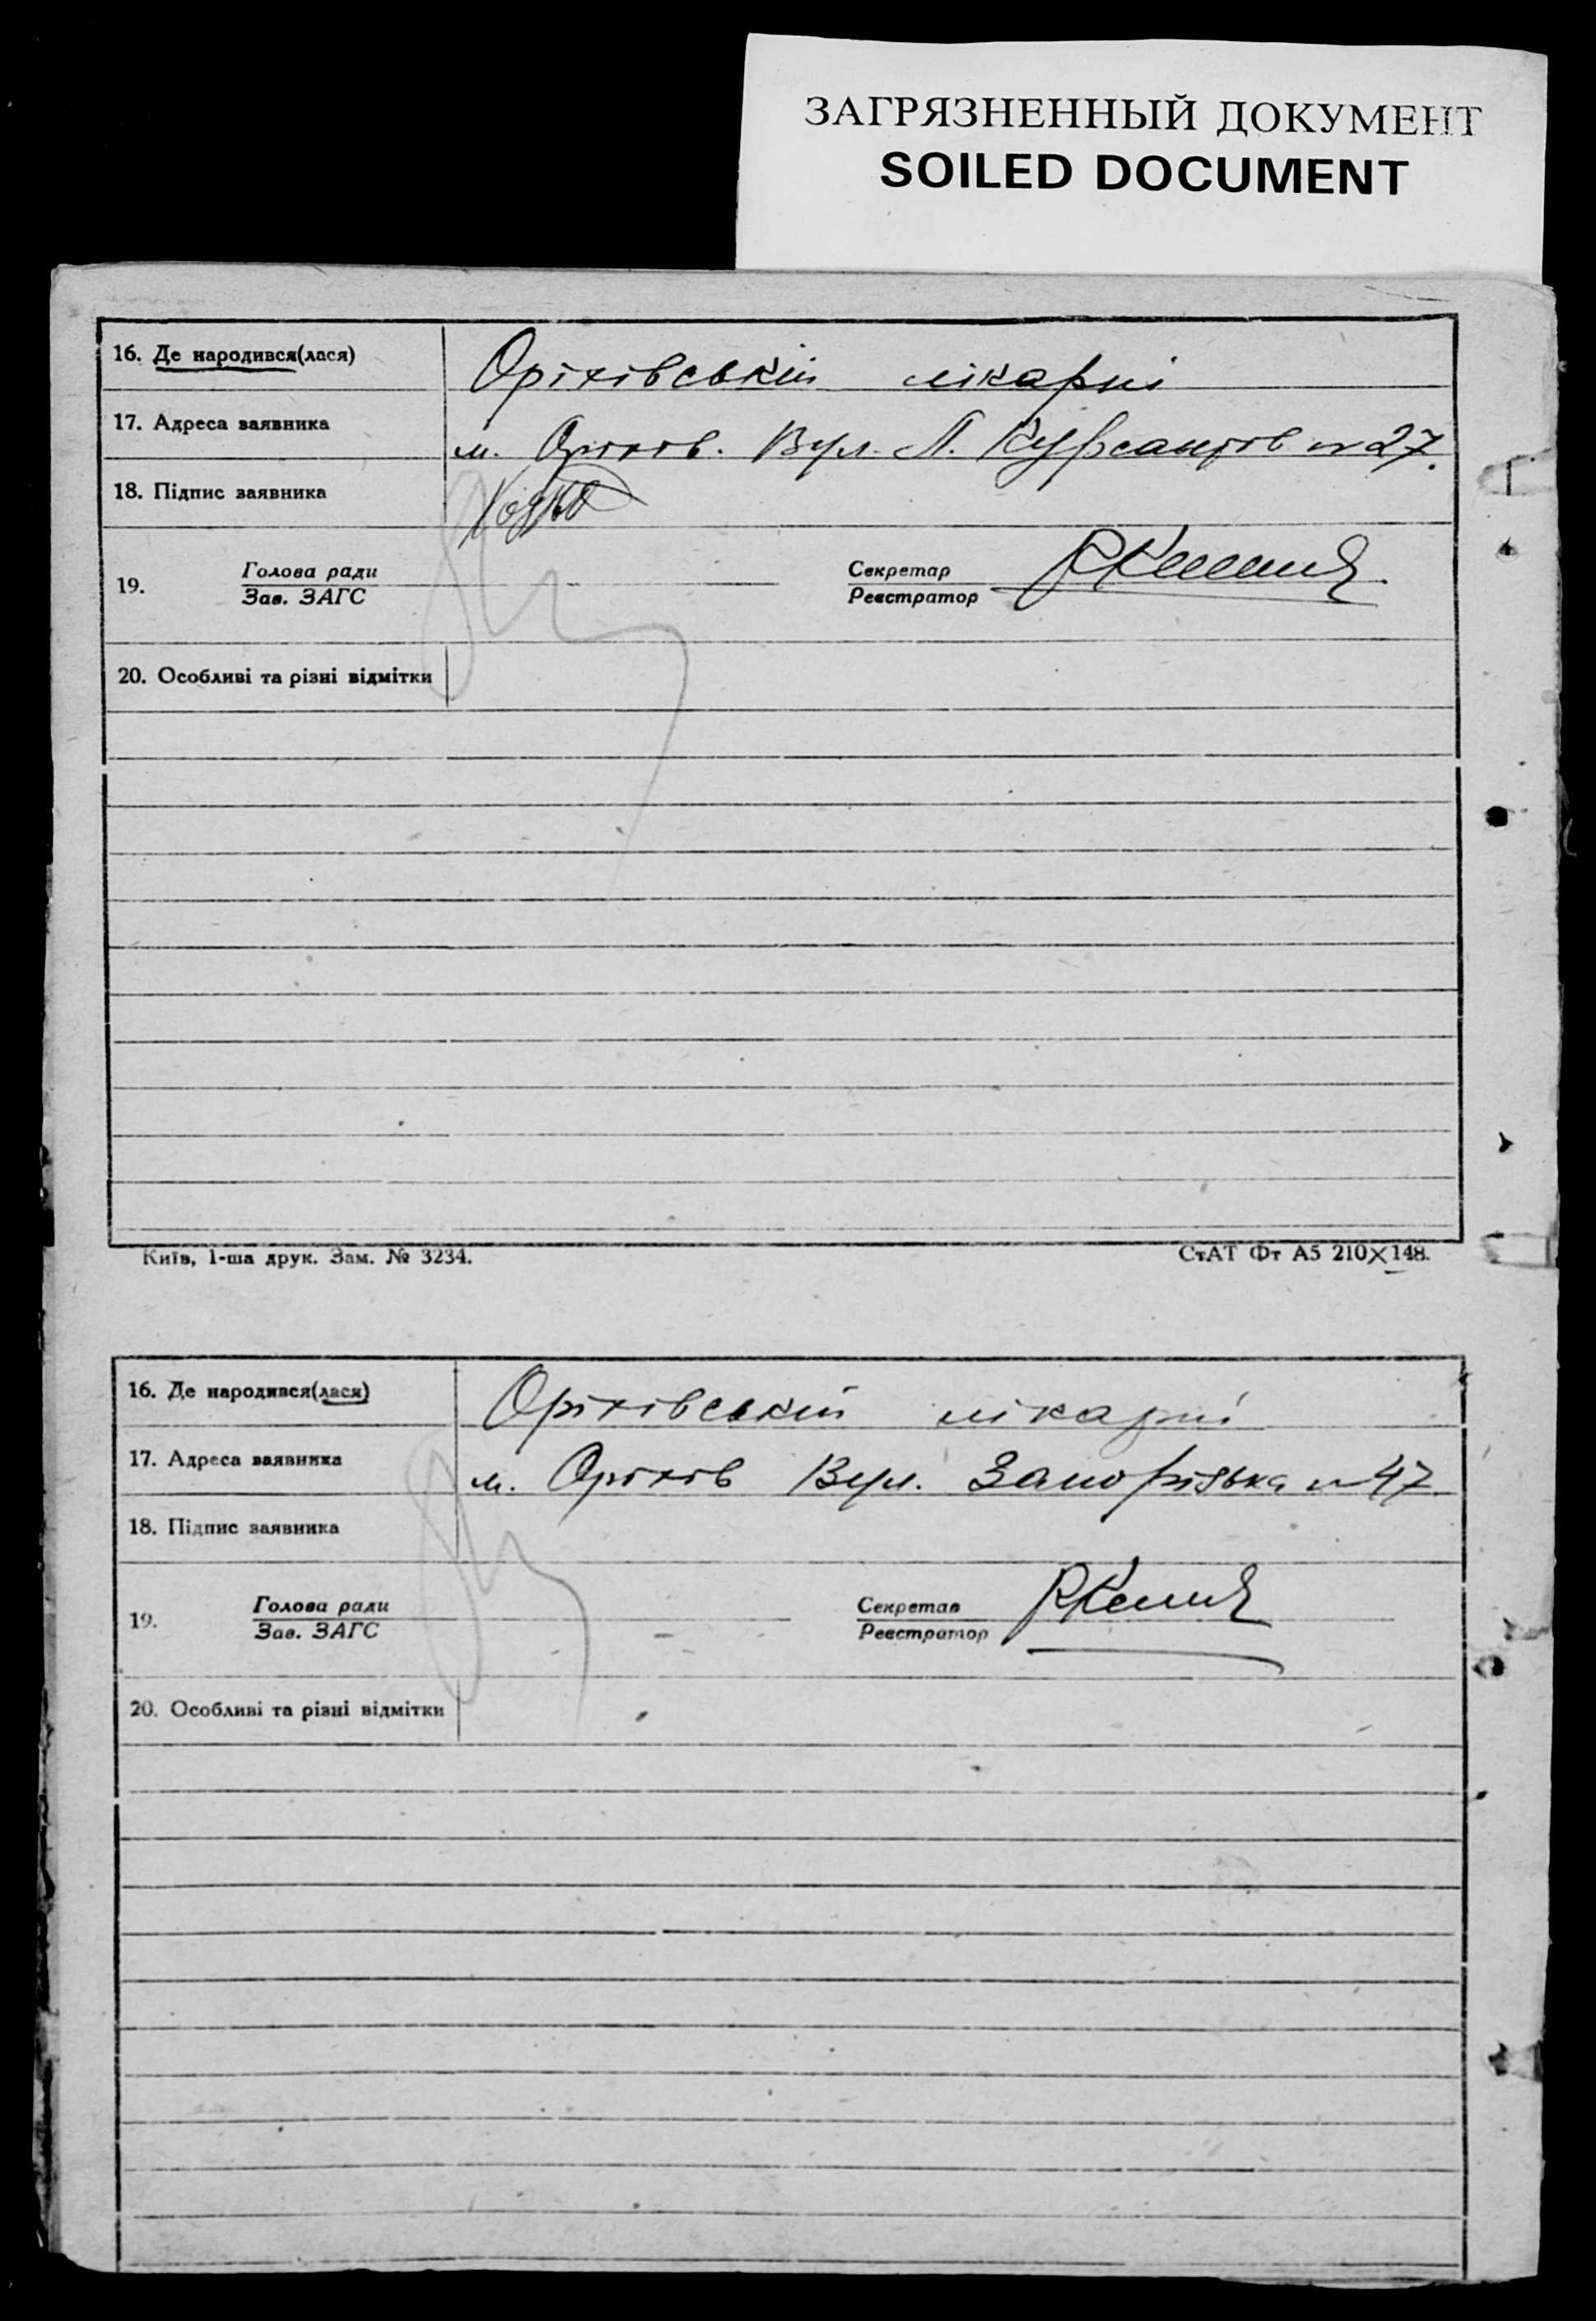 ЗАГРЯЗНЕННЫЙ ДОКУМЕНТ
SOILED DOCUMENT
16. Де народився(лася) Оріхівській лікарні
17. Адреса заявника м. Оріхів. Вул. Л. Курсантів № 27.
18. Підпис заявника
Голова ради Секретар
19.
Зав. ЗАГС Реєстратор
20. Особливі та різні відмітки
Київ, 1-ша друк. Зам. № 3234. СтАТ Фт А5 210×148.
16. Де народився(лася) Оріхівській лікарні
17. Адреса заявника м. Оріхів Вул. Запорізька № 47
18. Підпис заявника
Голова ради Секретар
19.
Зав. ЗАГС Реєстратор
20. Особливі та різні відмітки